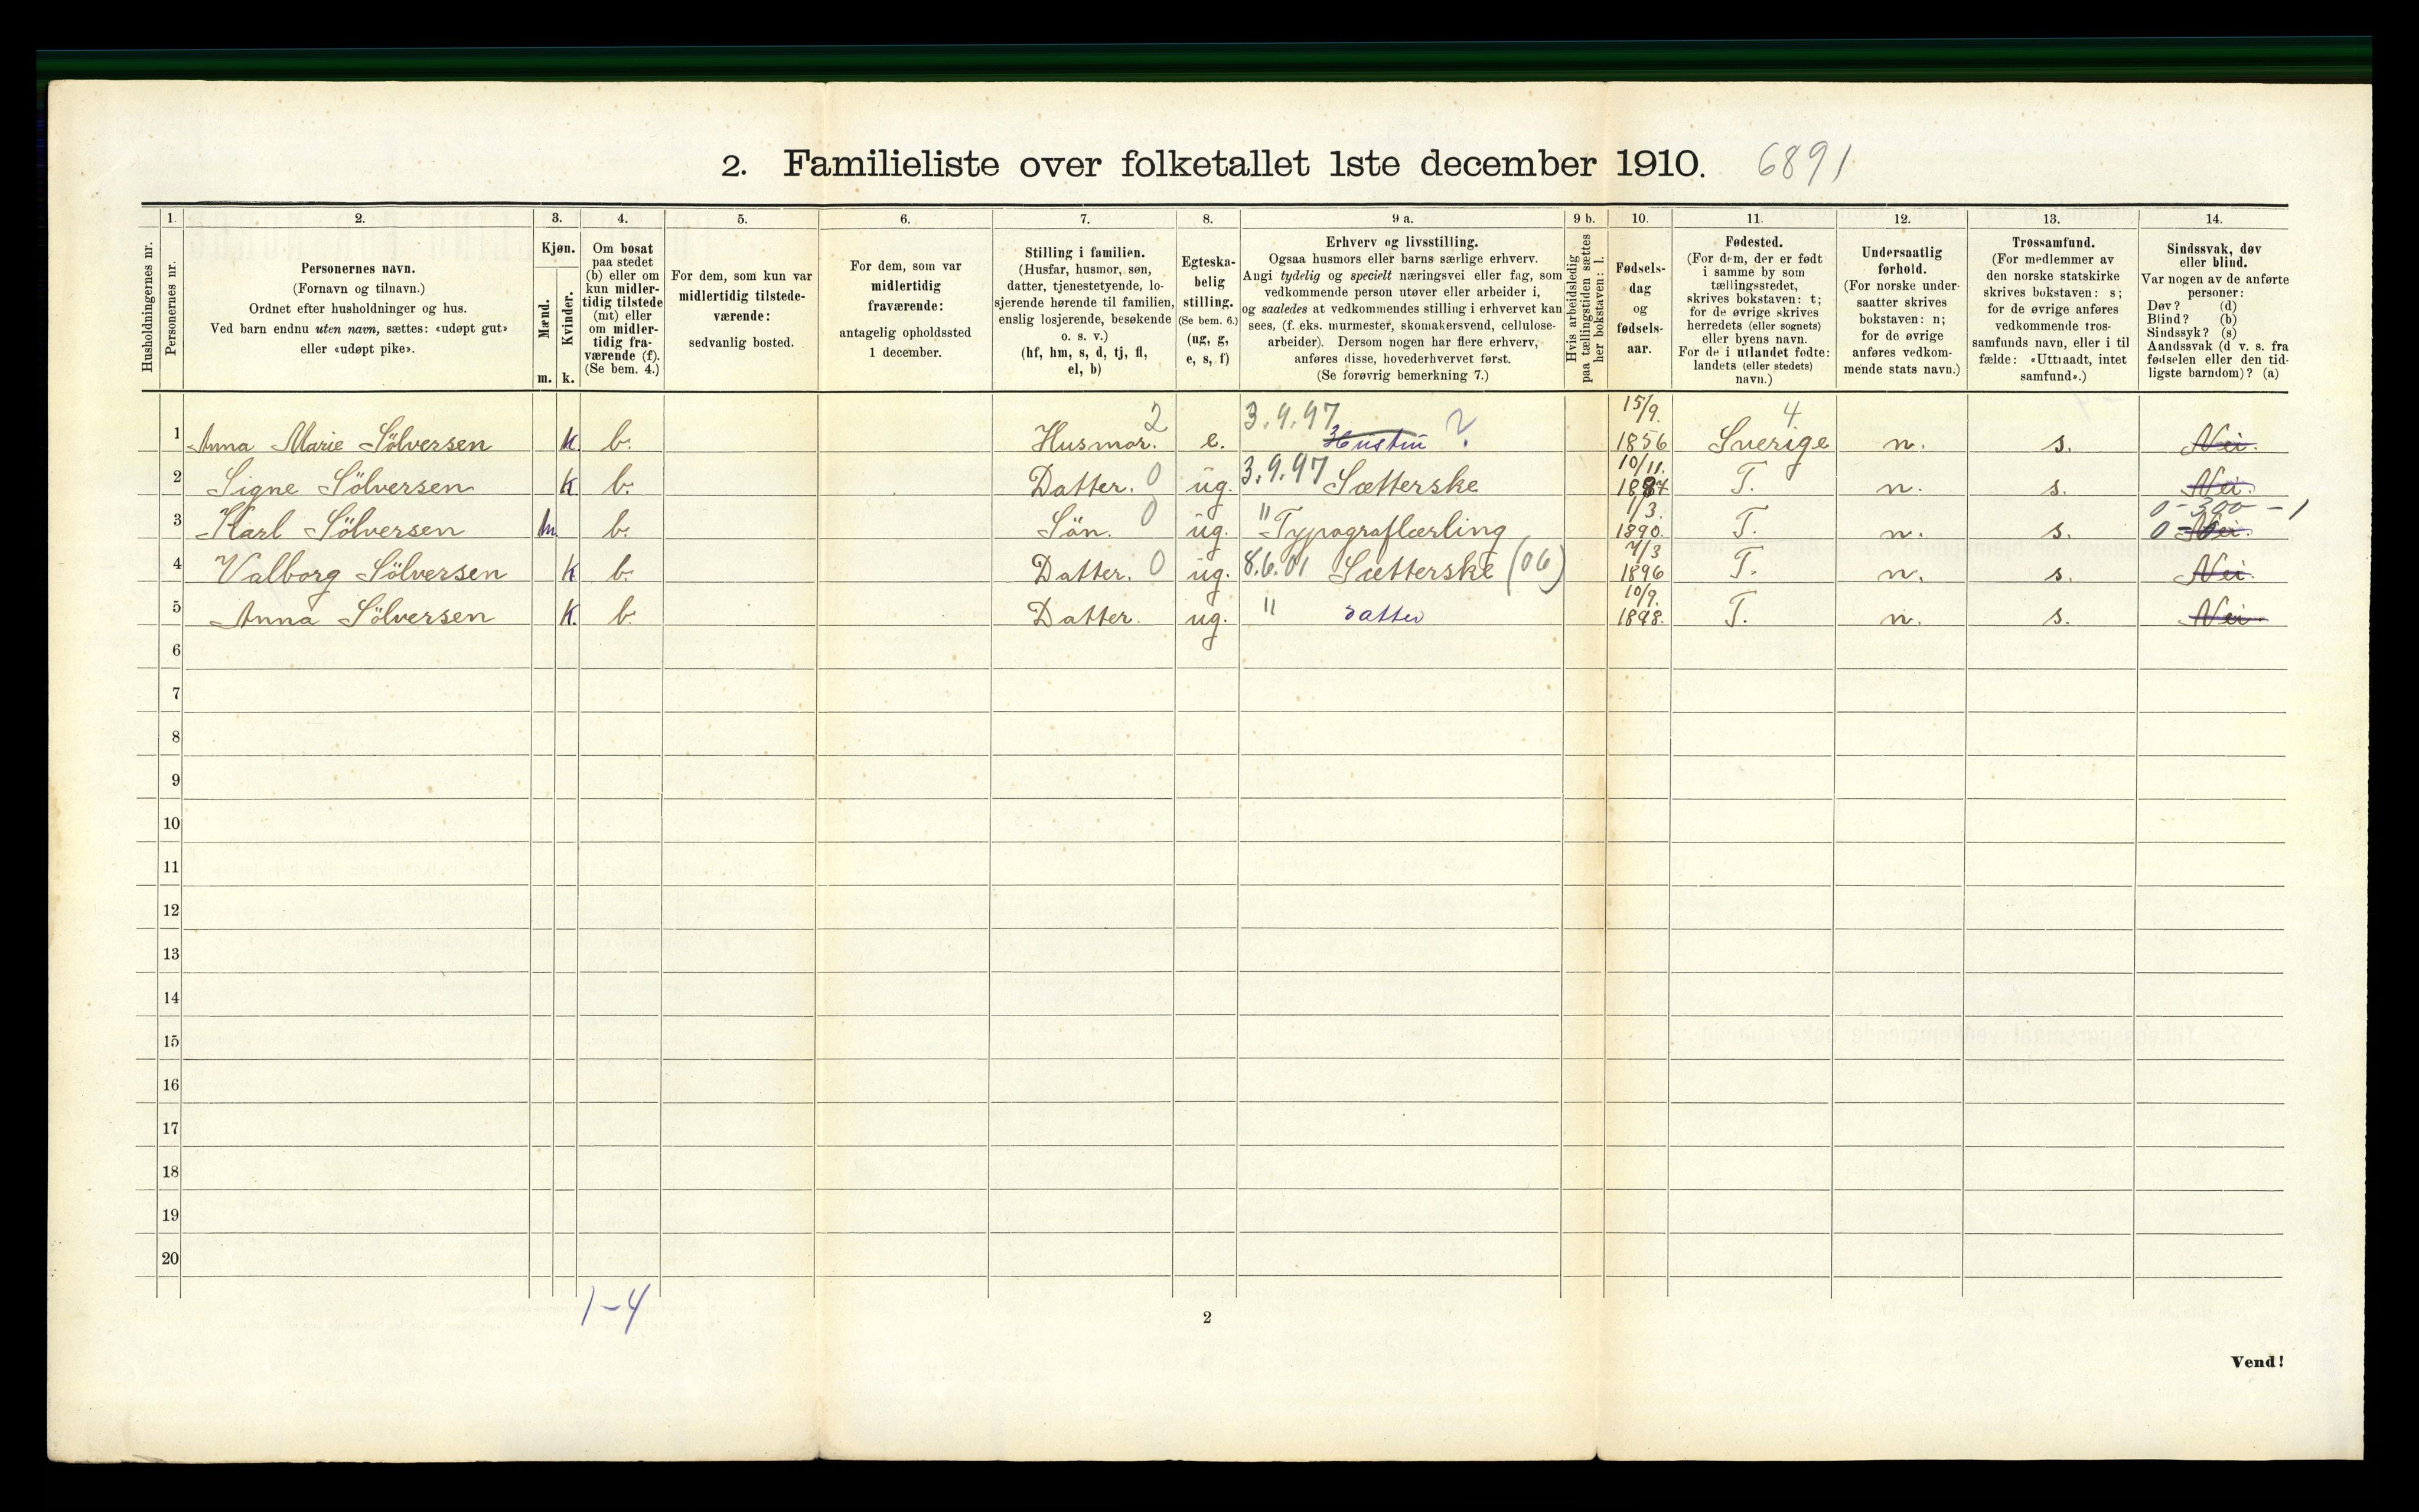 2. Familieliste over folketallet 1ste december 1910. 6891
1. 2. 3. 4. 5. 6. 7. 8. 9 a. 9 b. 10. 11. 12. 13. 14.
Husholdningernes nr.
Personernes nr.
Personernes navn.
(Fornavn og tilnavn.)
Ordnet efter husholdninger og hus.
Ved barn endnu uten navn, sættes: «udøpt gut»
eller «udøpt pike».
Kjøn.
Mænd.
Kvinder.
m. k.
Om bosat
paa stedet
(b) eller om
kun midler-
tidig tilstede
(mt) eller
om midler-
tidig fra-
værende (f).
(Se bem. 4.)
For dem, som kun var
midlertidig tilstede-
værende:
sedvanlig bosted.
For dem, som var
midlertidig
fraværende:
antagelig opholdssted
1 december.
Stilling i familien.
(Husfar, husmor, søn,
datter, tjenestetyende, lo-
sjerende hørende til familien,
enslig losjerende, besøkende
o. s. v.)
(hf, hm, s, d, tj, fl,
el, b)
Egteska-
belig
stilling.
(Se bem. 6.)
(ug, g,
e, s, f)
Erhverv og livsstilling.
Ogsaa husmors eller barns særlige erhverv.
Angi tydelig og specielt næringsvei eller fag, som
vedkommende person utøver eller arbeider i,
og saaledes at vedkommendes stilling i erhvervet kan
sees, (f. eks. murmester, skomakersvend, cellulose-
arbeider). Dersom nogen har flere erhverv,
anføres disse, hovederhvervet først.
(Se forøvrig bemerkning 7.)
Hvis arbeidsledig
paa tællingstiden sættes
her bokstaven: l.
Fødsels-
dag
og
fødsels-
aar.
Fødested.
(For dem, der er født
i samme by som
tællingsstedet,
skrives bokstaven: t;
for de øvrige skrives
herredets (eller sognets)
eller byens navn.
For de i utlandet fødte:
landets (eller stedets)
navn.)
Undersaatlig
forhold.
(For norske under-
saatter skrives
bokstaven: n;
for de øvrige
anføres vedkom-
mende stats navn.)
Trossamfund.
(For medlemmer av
den norske statskirke
skrives bokstaven: s;
for de øvrige anføres
vedkommende tros-
samfunds navn, eller i til
fælde: «Uttraadt, intet
samfund».)
Sindssvak, døv
eller blind.
Var nogen av de anførte
personer:
Døv? (d)
Blind? (b)
Sindssyk? (s)
Aandssvak (d v. s. fra
fødselen eller den tid-
ligste barndom)? (a)
2 3.9.97 15/9. 4
1 Anna Marie Sölversen k. b. Husmor. e. Hustru ? 1856 Sverige n. s. Nei.
10/11.
2 Signe Sölversen k. b. Datter. 0 ug. 3.9.97 Sætterske 1887 T. n. s. Nei.
1/3. 0-300-1
3 Karl Sölversen m. b. Sön. 0 ug. " Typograflærling 1890. T. n. s. 0 Nei.
7/3
4 Valborg Sölversen k b. Datter. 0 ug. 8.6.01 Sætterske (06) 1896 T. n. s. Nei.
10/9.
5 Anna Sölversen k. b. Datter. ug. " datter 1898. T. n. s. Nei.
6
7
8
9
10
11
12
13
14
15
16
17
18
19
20
1-4
2
Vend!